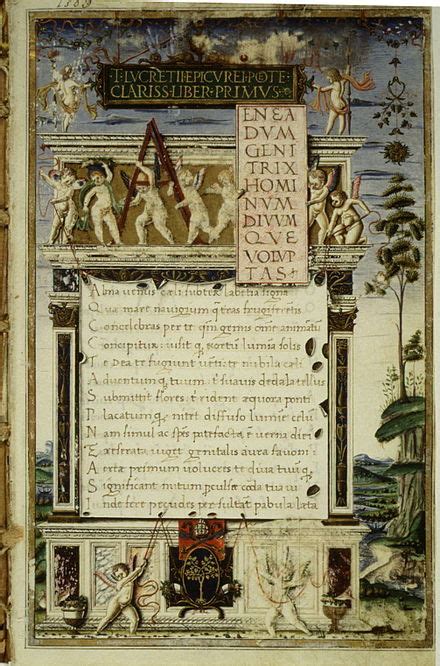 T·LVCRETII·EPICVREI·POTE·
CLARISS·LIBER·PRIMVS·
ENEA
DVM
GENI
TRIX
HOMI
NVM
DIVVM
QVE
VOLVP
TAS
A
Alma uenus cæli subter labentia signa
Quæ mare nauigerum q̃ terras frugiferentis
Concelebras per te qm̃ genus omne animãtũ
Concipitur: uisit q̃ exortũ lumina solis
Te Dea te fugiunt uẽti: te nubila cæli
Aduentum q̃ tuum: t̃ suauis dedala tellus
Submittit flores: t̃ rident æquora ponti
Placatum q̃ nitet diffuso lumĩe celũ
Nam simul ac spẽs patefacta ẽ uerna diei
Et reserata uiget genitalis aura fauoni
Aeriæ primum uolucres te diua tuũ q̃
Significant initum perculsæ corda tua ui
Inde feræ pecudes persultãt pabula læta